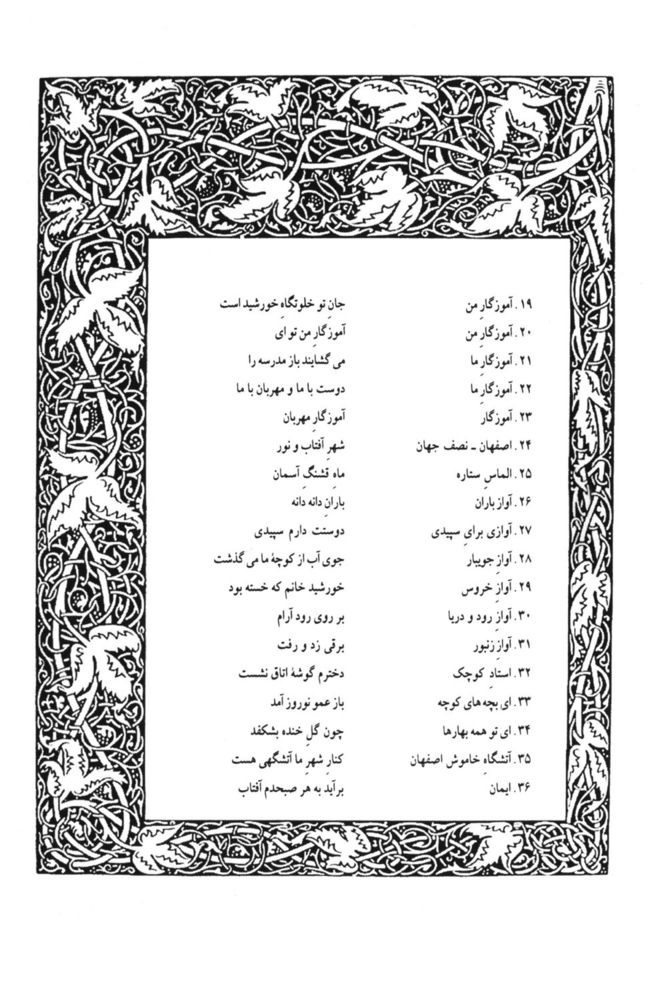 ۱۹. آموزگارِ من جانِ تو خلوتگاهِ خورشید است
۲۰. آموزگارِ من آموزگارِ من تو ای
۲۱. آموزگارِ ما می گشایند باز مدرسه را
۲۲. آموزگارِ ما دوست با ما و مهربان با ما
۲۳. آموزگار آموزگارِ مهربان
۲۴. اصفهان ـ نصف جهان شهرِ آفتاب و نور
۲۵. الماسِ ستاره ماهِ قشنگِ آسمان
۲۶. آواز باران بارانِ دانه دانه
۲۷. آوازی برایِ سپیدی دوستت دارم سپیدی
۲۸. آوازِ جویبار جوی آب از کوچهٔ ما می گذشت
۲۹. آوازِ خروس خورشید خانم که خسته بود
۳۰. آوازِ رود و دریا بر روی رود آرام
۳۱. آوازِ زنبور برقی زد و رفت
۳۲. استادِ کوچک دخترم گوشهٔ اتاق نشست
۳۳. ای بچه های کوچه باز عمو نوروز آمد
۳۴. ای تو همه بهارها چون گلِ خنده بشکفد
۳۵. آتشگاهِ خاموش اصفهان کنارِ شهرِ ما آتشگهی هست
۳۶. ایمان برآید به هر صبحدم آفتاب